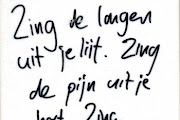 Zing de longen
uit je lijf. Zing
de pijn uit je
hart. Zing